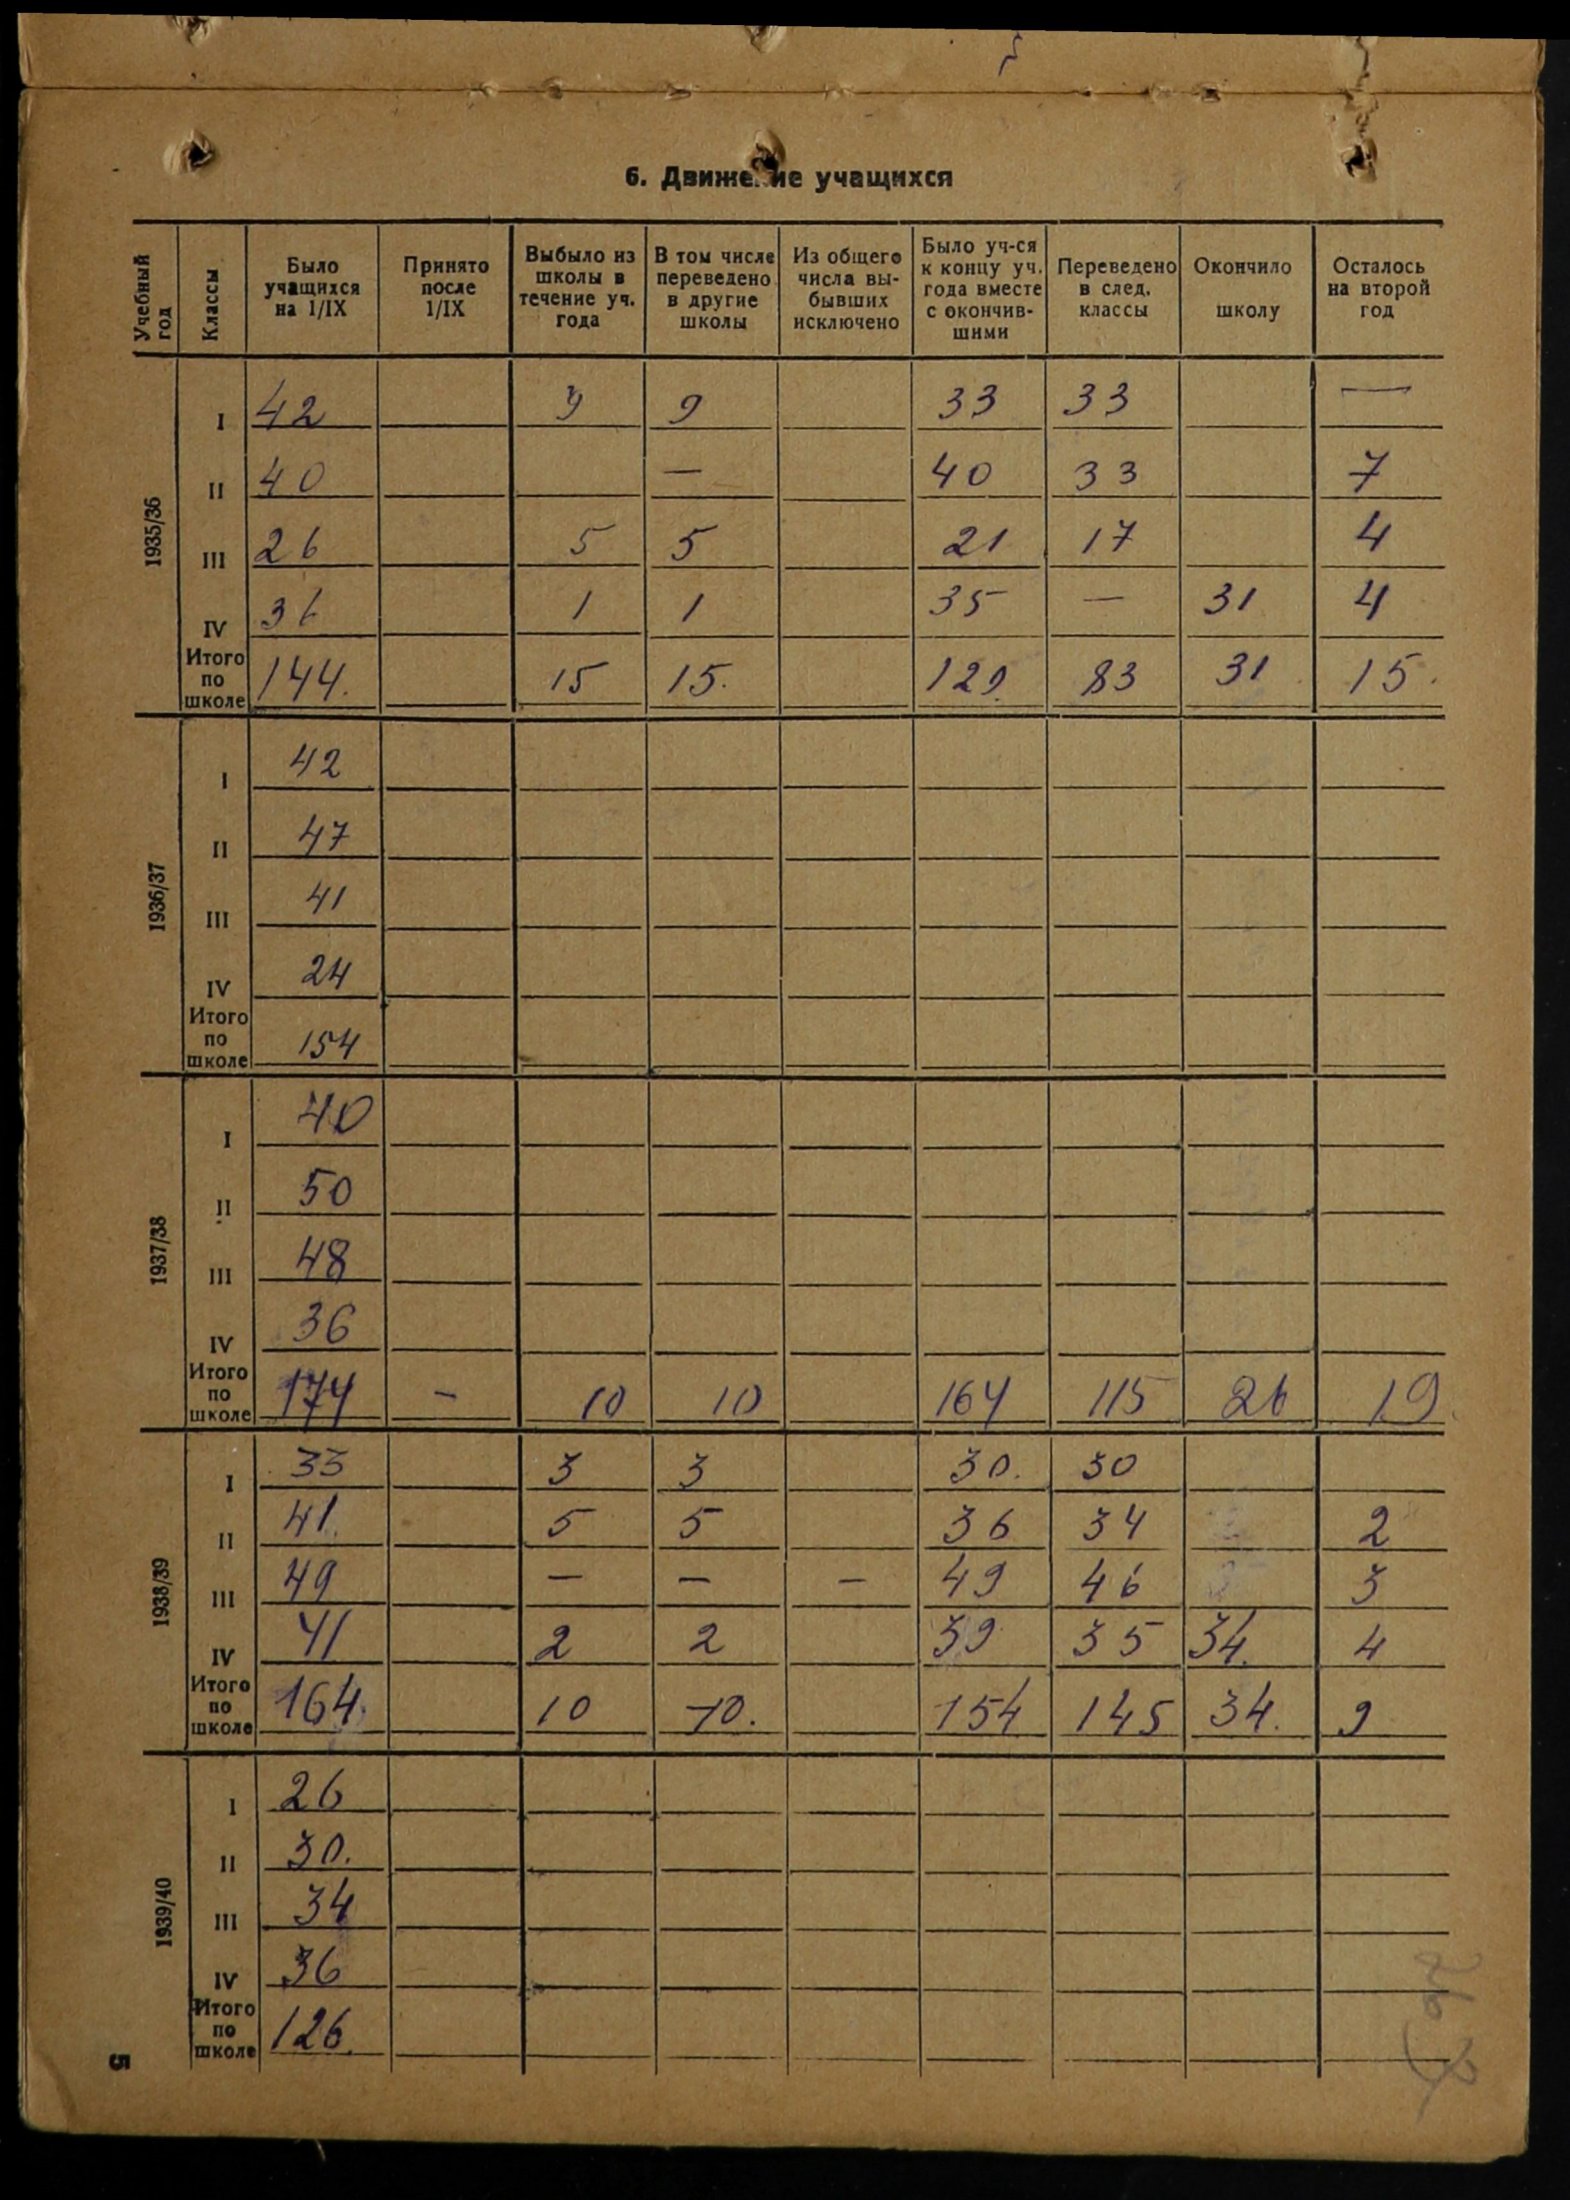 6. Движение учащихся
Учебный год | Классы | Было учащихся на 1/IX | Принято после 1/IX | Выбыло из школы в течение уч. года | В том числе переведено в другие школы | Из общего числа выбывших исключено | Было уч-ся к концу уч. года вместе с окончившими | Переведено в след. классы | Окончило школу | Осталось на второй год
1935/36
I 42 9 9 33 33 —
II 40 — 40 33 7
III 26 5 5 21 17 4
IV 36 1 1 35 — 31 4
Итого по школе 144. 15 15. 129. 83 31 15.
1936/37
I 42
II 47
III 41
IV 24
Итого по школе 154
1937/38
I 40
II 50
III 48
IV 36
Итого по школе 174 – 10 10 164 115 26 19.
1938/39
I 33 3 3 30. 30
II 41. 5 5 36 34 2
III 49 — — — 49 46 3
IV 41 2 2 39 35 34. 4
Итого по школе 164. 10 10. 154 145 34. 9
1939/40
I 26
II 30.
III 34
IV 36
Итого по школе 126.
5